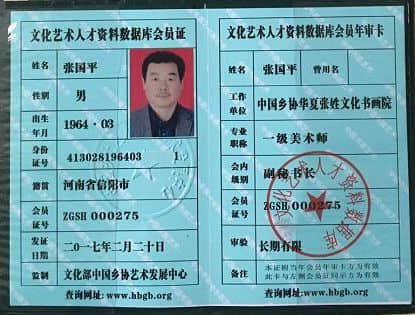 文化艺术人才资料数据库会员证
姓名 张国平
性别 男
出生年月 1964·03
身份证号 413028196403 1
籍贯 河南省信阳市
会员证号 ZGSH 000275
发证日期 二〇一七年二月二十日
监制 文化部中国乡协艺术发展中心
查询网址:www.hbgb.org
文化艺术人才资料数据库会员年审卡
姓名 张国平 曾用名
工作单位 中国乡协华夏张姓文化书画院
专业职称 一级美术师
会内级别 副秘书长
会员证号 ZGSH 000275
审验 长期有限
备注 本证期当年会员年审卡方为有效
此卡与左侧会员证同示方为有效
查询网址:www.hbgb.org
文化艺术人才资料数据库